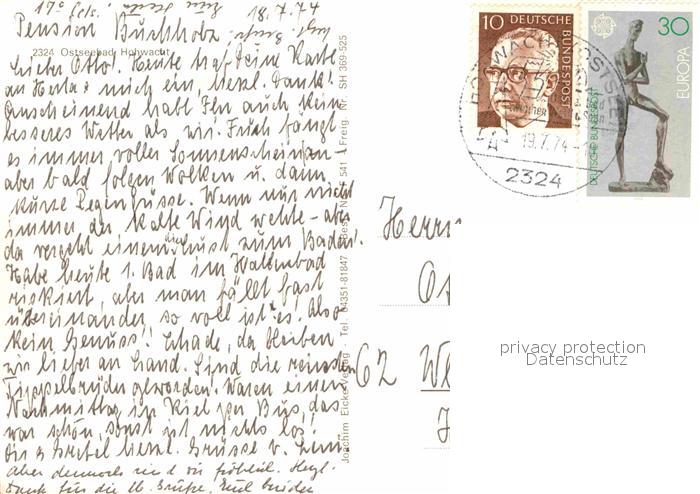 17° Cels. 18.7.74
Pension Buchholz
2324 Ostseebad Hohwacht
Lieber Otto! Heute traf Deine Karte
an Herta + mich ein, herzl. Dank!
Anscheinend habt Ihr auch kein
besseres Wetter als wir. Früh fängt
es immer voller Sonnenschein an –
aber bald folgen Wolken u. dann
kurze Regengüsse. Wenn nur nicht
immer der kalte Wind wehte – aber
da vergeht einem die Lust zum Baden!
Habe heute 1. Bad im Wellenbad
riskiert, aber man fällt fast
übereinander, so voll ist es. Also
kein Genuss! Schade, da bleiben
wir lieber an Land. Sind die reinsten
Tippelbrüder geworden. Waren einen
Nachmittag in Kiel per Bus, das
war schön, sonst ist nichts los!
Grüsse v.
Aber dennoch sind wir fröhlich. Herzl.
Dank für die lb. Grüße.
Joachim Eicke-Verlag · Tel. 04351-81847 Best. Nr. 541 Freig. Nr. SH 369-525
10 DEUTSCHE BUNDESPOST
30 EUROPA
DEUTSCHE BUNDESPOST
19.7.74
2324
Herrn
62
privacy protection
Datenschutz